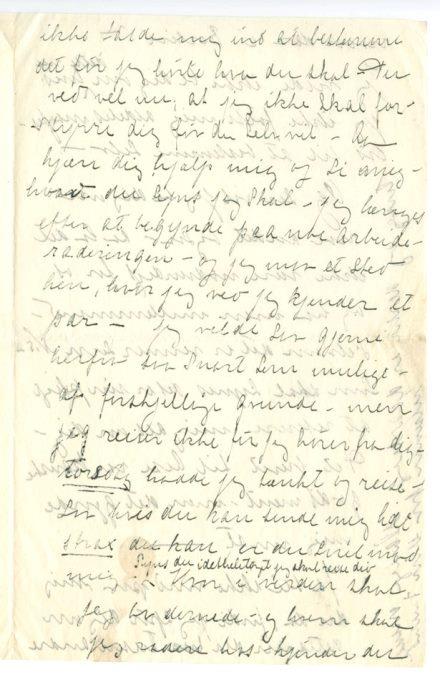 ikke falde mig ind at bestemme
det før jeg hvad du skal – Du
ved vel nu, at jeg ikke skal for-
styrre dig før du selv vil – Og
kjære dig hjælp mig og si mig
hvad du syns jeg skal – jeg længes
efter at begynde paa mit arbeide
raderingen – og jeg maa et sted
hen, hvor jeg ved jeg kjender et
par – jeg vilde saa gjerne
herfra saa snart som mulig
af forskjellige grunde – men
jeg reiser ikke før jeg hører fra dig
torsdag havde jeg tænkt og reise –
Saa hvis du kan sende mig lidt
strax du kan er du snil mod
Synes du jeg skal reise
mig – hvor i verden skal
jeg bo dernede – og hvem skal
jeg radere hos – kjender du